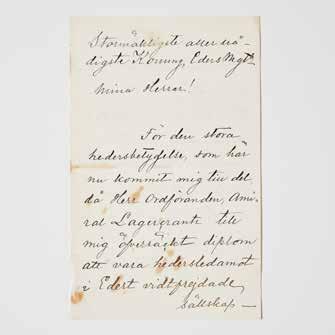 Stormäktigste allernå-
digste Konung, Eders Mgt
mina Herrar!
För den stora
hedersbetygelse, som här
nu kommit mig till del
då Herr Ordföranden, Ami-
ral Lagercrantz
mig öfverräckt diplom
att vara hedersledamot
i Edert vidtfrejdade
Sällskap —